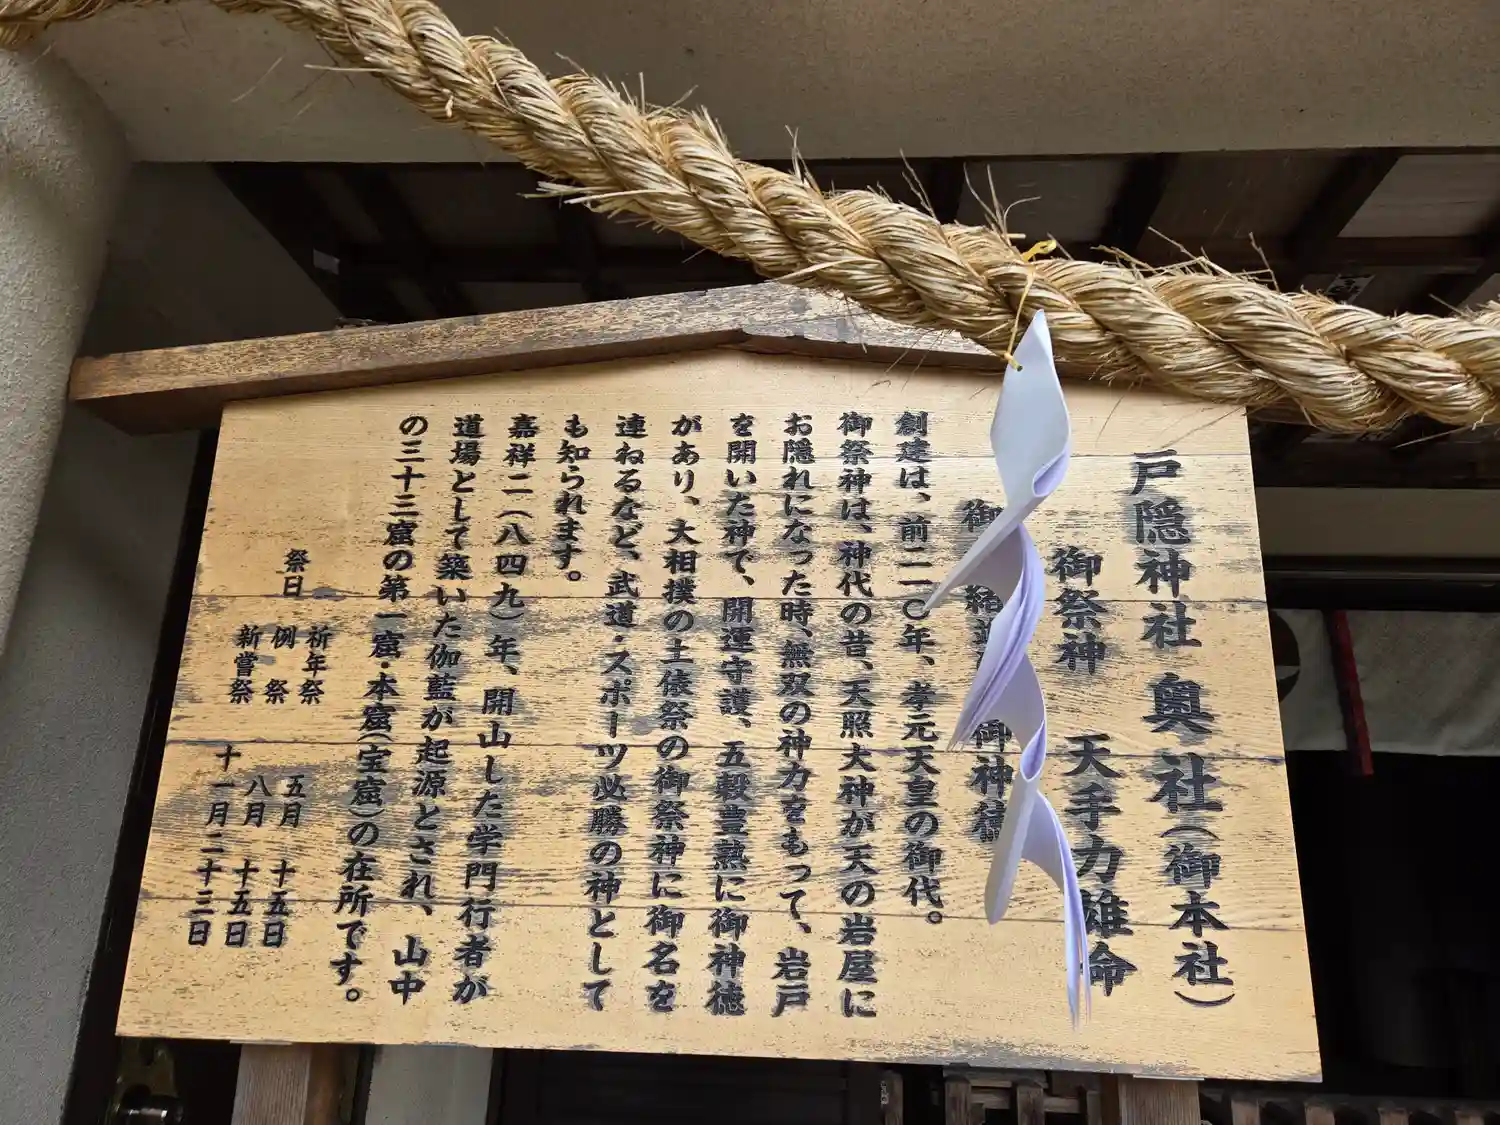 戸隠神社 奥社(御本社)
御祭神 天手力雄命
御 結 御神徳
創建は、前二一〇年、孝元天皇の御代。
御祭神は、神代の昔、天照大神が天の岩屋に
お隠れになった時、無双の神力をもって、岩戸
を開いた神で、開運守護、五穀豊熟に御神徳
があり、大相撲の土俵祭の御祭神に御名を
連ねるなど、武道・スポーツ必勝の神として
も知られます。
嘉祥二(八四九)年、開山した学門行者が
道場として築いた伽藍が起源とされ、山中
の三十三窟の第一窟・本窟(宝窟)の在所です。
祭日 祈年祭 五月 十五日
例 祭 八月 十五日
新嘗祭 十一月二十三日